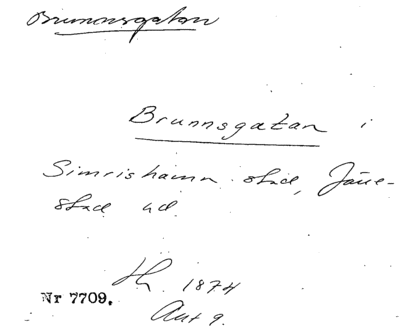 Brunnsgatan
Brunnsgatan i
Simrishamn stad, Järre-
stad hd.
Th. 1874
Nr 7709.
Akt 9.